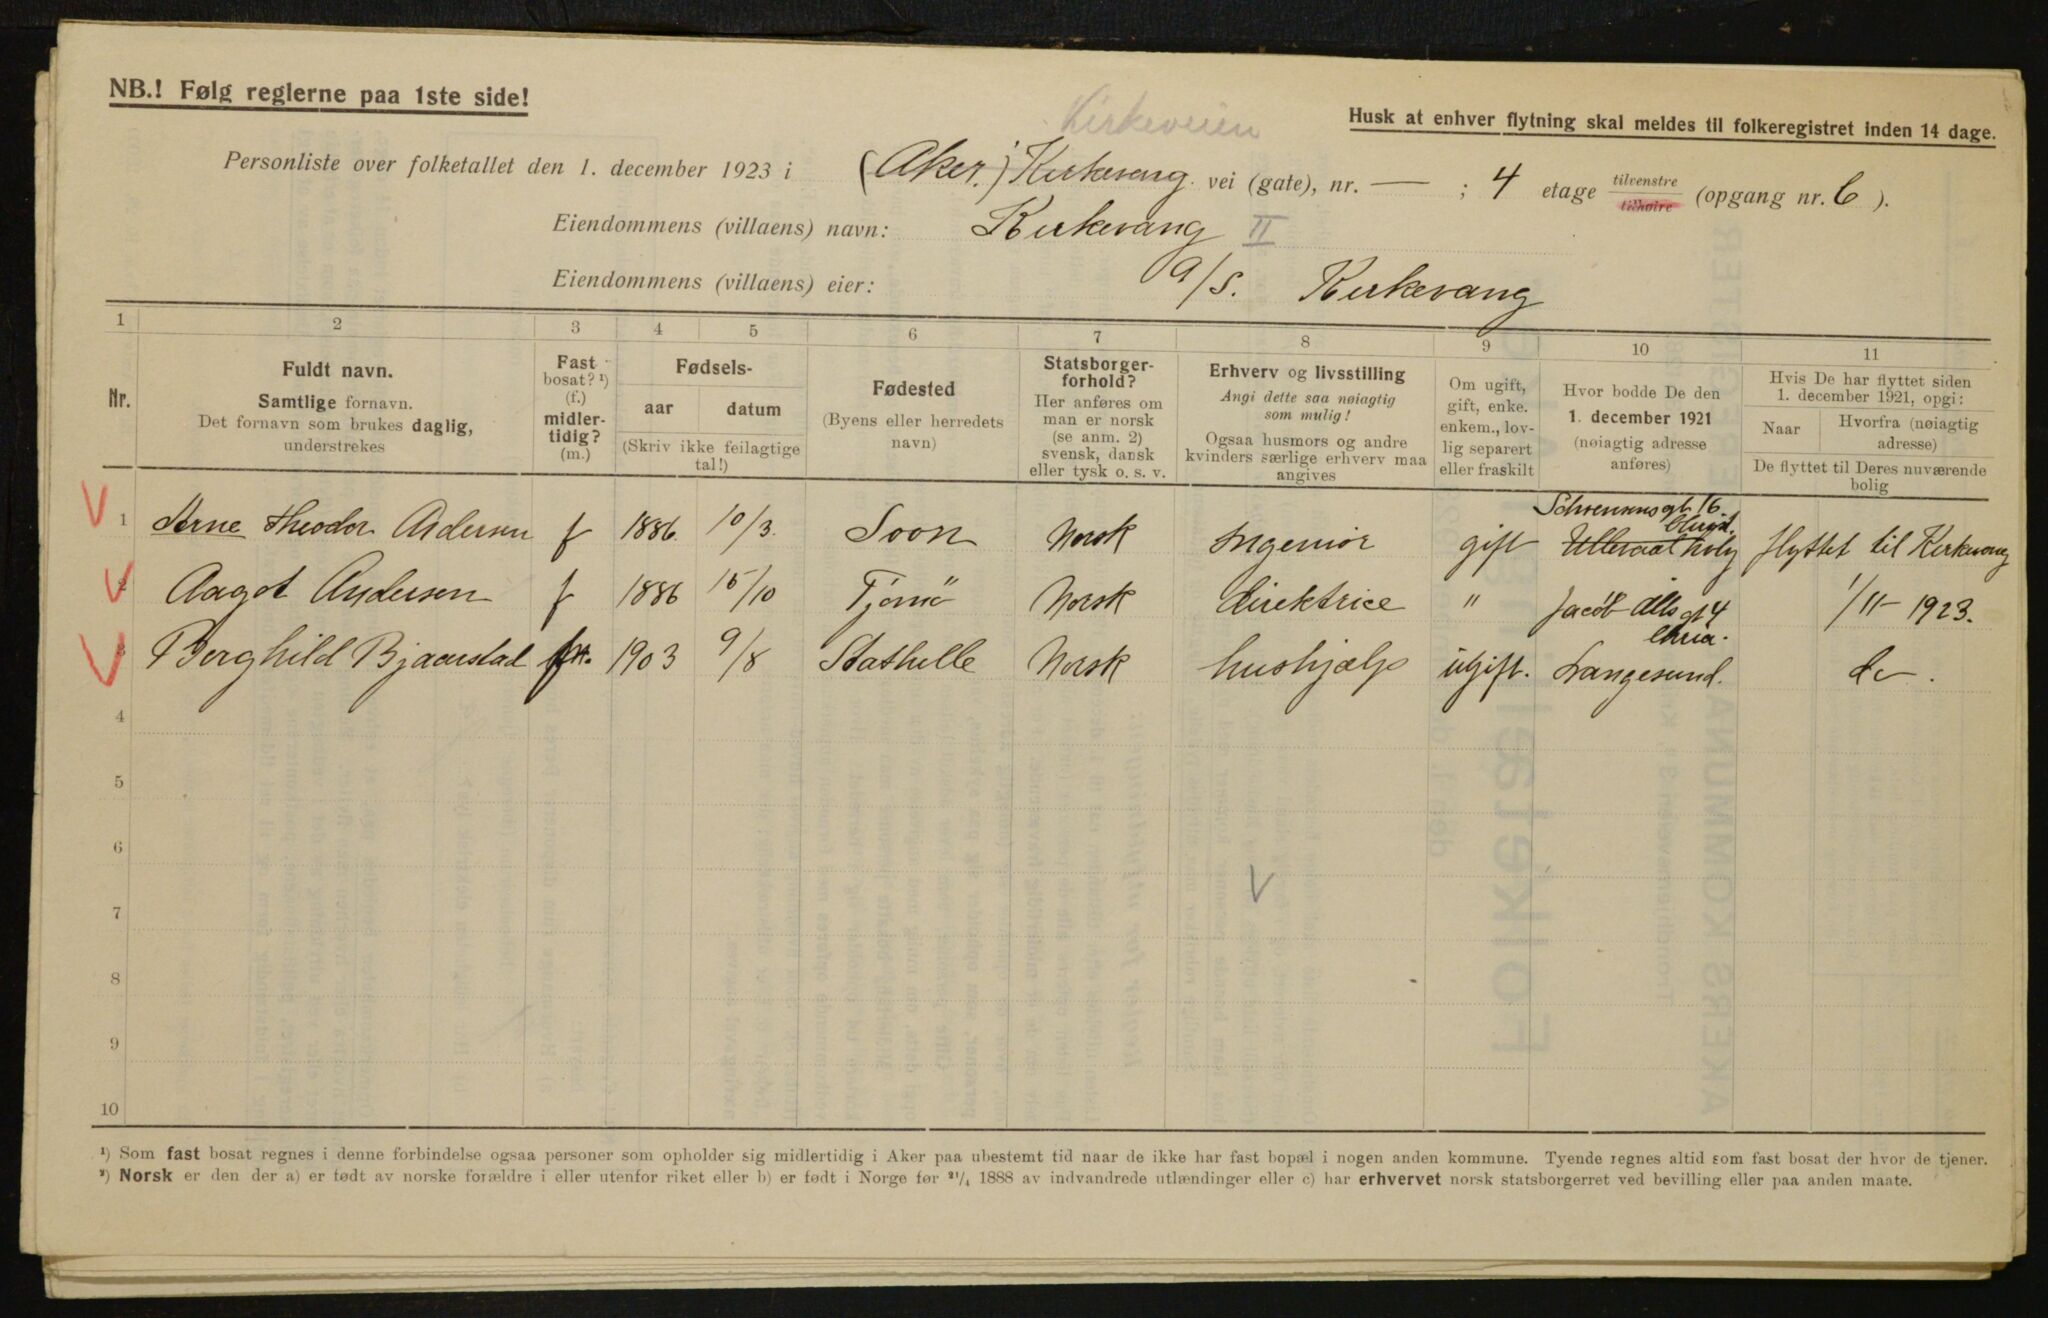 NB.! Følg reglerne paa 1ste side!
Husk at enhver flytning skal meldes til folkeregistret inden 14 dage.
Kirkeveien
Personliste over folketallet den 1. december 1923 i (Aker.) Kirkevang vei (gate), nr. — ; 4 etage tilvenstre tilhøire (opgang nr. 6 ).
Eiendommens (villaens) navn: Kirkevang II
Eiendommens (villaens) eier: A/S. Kirkevang
1 2 3 4 5 6 7 8 9 10 11
Nr.
Fuldt navn.
Samtlige fornavn.
Det fornavn som brukes daglig,
understrekes
Fast
bosat? ¹)
(f.)
midler-
tidig?
(m.)
Fødsels-
aar datum
(Skriv ikke feilagtige
tal!)
Fødested
(Byens eller herredets
navn)
Statsborger-
forhold?
Her anføres om
man er norsk
(se anm. 2)
svensk, dansk
eller tysk o. s. v.
Erhverv og livsstilling
Angi dette saa nøiagtig
som mulig!
Ogsaa husmors og andre
kvinders særlige erhverv maa
angives
Om ugift,
gift, enke.
enkem., lov-
lig separert
eller fraskilt
Hvor bodde De den
1. december 1921
(nøiagtig adresse
anføres)
Hvis De har flyttet siden
1. december 1921, opgi:
Naar Hvorfra (nøiagtig
adresse)
De flyttet til Deres nuværende
bolig
1 Arne Theodor Andersen f 1886. 10/3. Soon Norsk Ingeniør gift 16. Ullevaal flyttet til Kirkevang
2 Aagot Andersen f 1886 15/10 Tjømø Norsk direktrice " Jacob Alls gt 4 Chria. 1/11 - 1923.
3 Berghild Bjaerstad f. 1903 9/8 Stathelle Norsk hushjælp ugift. Langesund. do .
4
5
6
7
8
9
10
¹) Som fast bosat regnes i denne forbindelse ogsaa personer som opholder sig midlertidig i Aker paa ubestemt tid naar de ikke har fast bopæl i nogen anden kommune. Tyende regnes altid som fast bosat der hvor de tjener.
²) Norsk er den der a) er født av norske forældre i eller utenfor riket eller b) er født i Norge før ²¹/₄ 1888 av indvandrede utlændinger eller c) har erhvervet norsk statsborgerret ved bevilling eller paa anden maate.